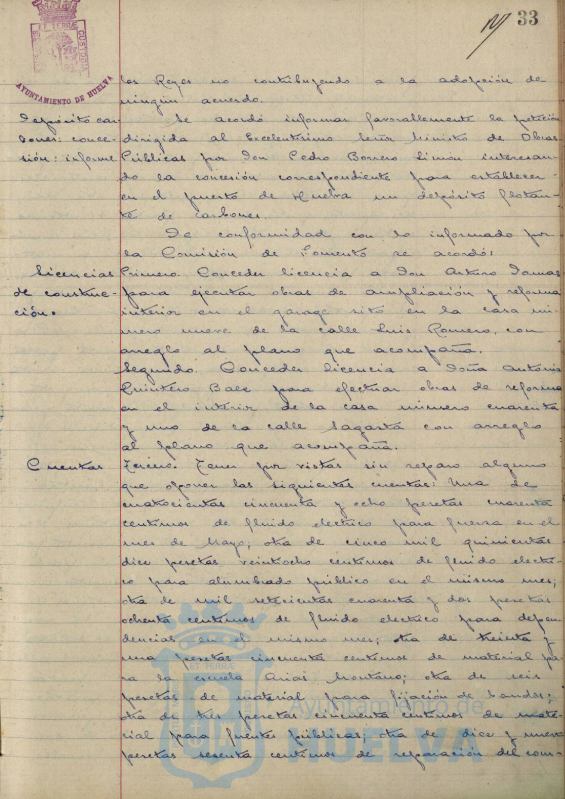 33
AYUNTAMIENTO DE HUELVA
los Reyes no contribuyendo a la adopción de
ningún acuerdo.
Depósito car-
bones: conce-
sión: informe
Se acordó informar favorablemente la petición
dirigida al Excelentísimo Señor Ministro de Obras
Públicas por Don Pedro Borrero Limon interesan-
do la concesión correspondiente para establecer
en el puerto de Huelva un depósito flotan-
te de carbones.
De conformidad con lo informado por
la Comisión de Fomento se acordó:
Licencias
de construc-
ción.
Primero. Conceder licencia a Don Arturo Damas
para ejecutar obras de ampliación y reforma
interior en el garage sito en la casa nú-
mero nueve de la calle Luis Romero, con
arreglo al plano que acompaña.
Segundo. Conceder licencia a Doña Antonia
Quintero Baez para efectuar obras de reforma
en el interior de la casa número cuarenta
y uno de la calle Sagasta con arreglo
al plano que acompaña.
Cuentas
Tercero. Tener por vistas sin reparo alguno
que oponer las siguientes cuentas: Una de
cuatrocientas cincuenta y ocho pesetas cuarenta
centimos de fluido electrico para fuerza en el
mes de Mayo; otra de cinco mil quinientas
dice pesetas veintiocho centimos de fluido electri-
co para alumbrado público en el mismo mes;
otra de mil setecientas cuarenta y dos pesetas
ochenta centimos de fluido electrico para depen-
dencias en el mismo mes; otra de treinta y
una pesetas cincuenta centimos de material pa-
ra la escuela Arias Montano; otra de seis
pesetas de material para fijación de bandos;
otra de tres pesetas cincuenta centimos de mate-
rial para fuentes públicas; otra de diez y nueve
pesetas sesenta centimos de reparación del com-
Ayuntamiento de
HUELVA